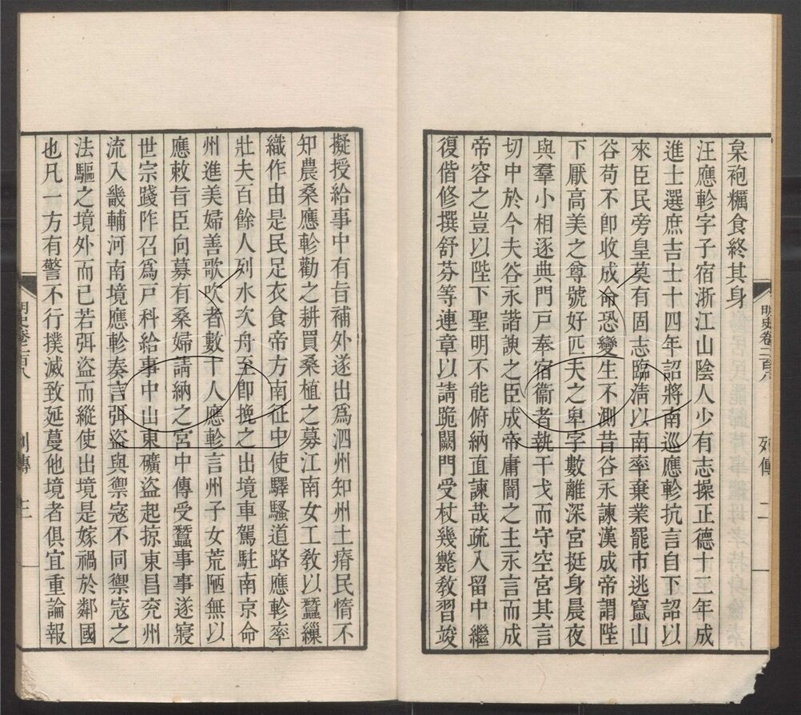 明史卷二百八
列傳
二
枲袍糲食終其身
汪應軫字子宿浙江山陰人少有志操正德十二年成
進士選庶吉士十四年詔將南巡應軫抗言自下詔以
來臣民旁皇莫有固志臨淸以南率棄業罷市逃竄山
谷苟不卽收成命恐變生不測昔谷永諫漢成帝謂陛
下厭高美之尊號好匹夫之卑字數離深宮挺身晨夜
與羣小相逐典門戸奉宿衞者執干戈而守空宮其言
切中於今夫谷永諧諛之臣成帝庸闇之主永言而成
帝容之豈以陛下聖明不能俯納直諫哉疏入留中繼
復偕修撰舒芬等連章以請跪闕門受杖幾斃敎習竣
擬授給事中有旨補外遂出爲泗州知州土瘠民惰不
知農桑應軫勸之耕買桑植之募江南女工敎以蠶繅
織作由是民足衣食帝方南征中使驛騷道路應軫率
壯夫百餘人列水次舟至卽挽之出境車駕駐南京命
州進美婦善歌吹者數十人應軫言州子女荒陋無以
應敕旨臣向募有桑婦請納之宮中傳受蠶事事遂寢
世宗踐阼召爲戸科給事中山東礦盜起掠東昌兖州
流入畿輔河南境應軫奏言弭盜與禦寇不同禦寇之
法驅之境外而已若弭盜而縱使出境是嫁禍於鄰國
也凡一方有警不行撲滅致延蔓他境者俱宜重論報
明史卷二百八
列傳
三